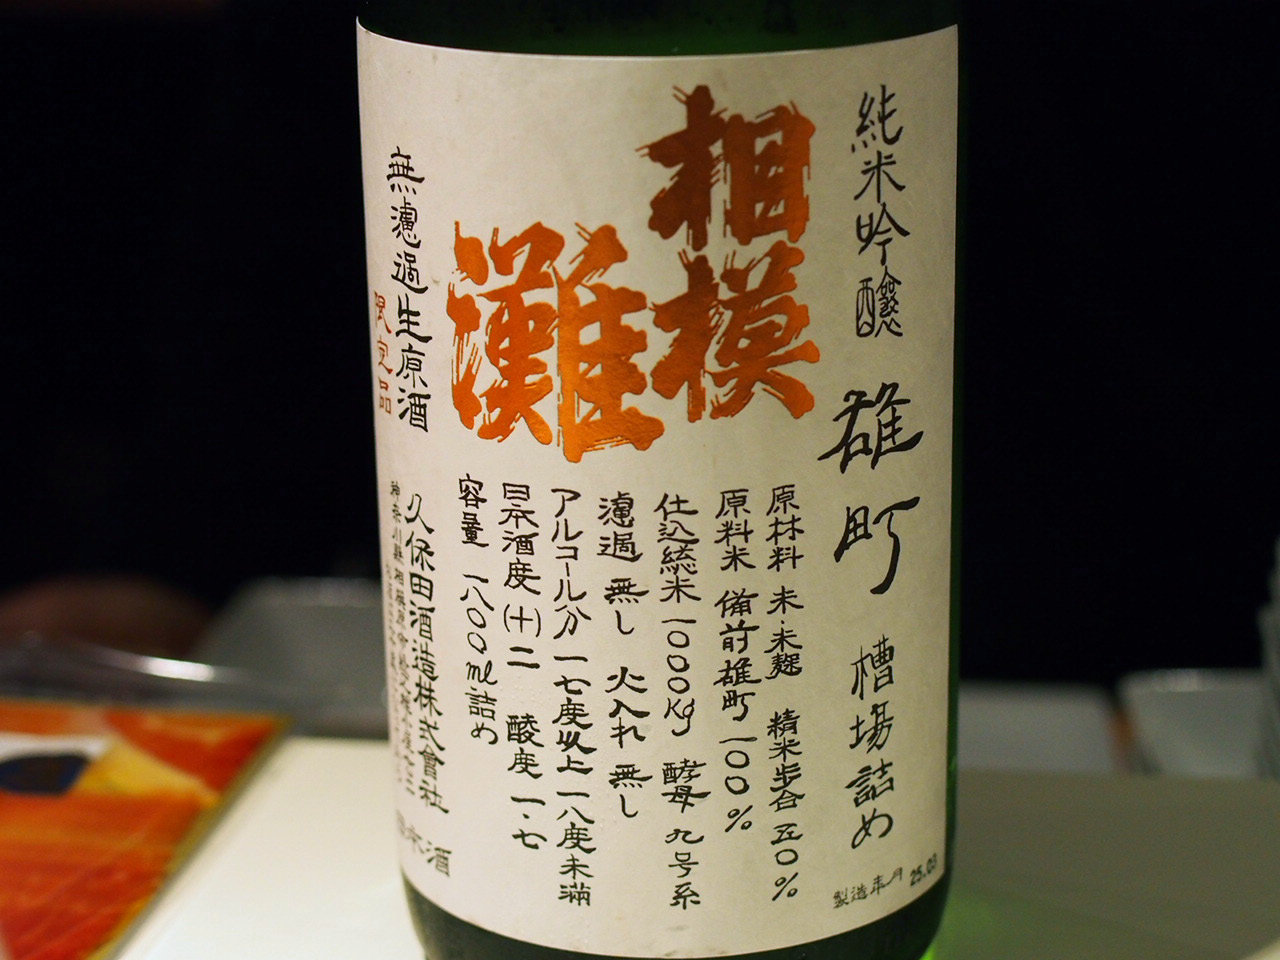 純米吟醸 雄町 槽場詰め
製造年月 25.03
相模
灘
原材料 米・米麹 精米歩合 五〇%
原料米 備前雄町 一〇〇%
仕込総米 一〇〇〇kg 酵母 九号系
濾過 無し 火入れ 無し
アルコール分 一七度以上一八度未満
日本酒度(十)二 酸度 一・七
容量 一八〇〇ml詰め
無濾過生原酒
限定品
久保田酒造株式會社
神奈川縣相模原